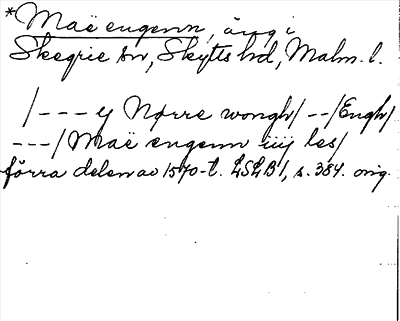 *Maë engenn, äng i
Skegrie sn, Skytts hd, Malm. l.
/--- y Nørre wongh/--/Engh/
---/Maë engenn iiij les/
förra delen av 1570-t. LSLB1, s. 384. orig.